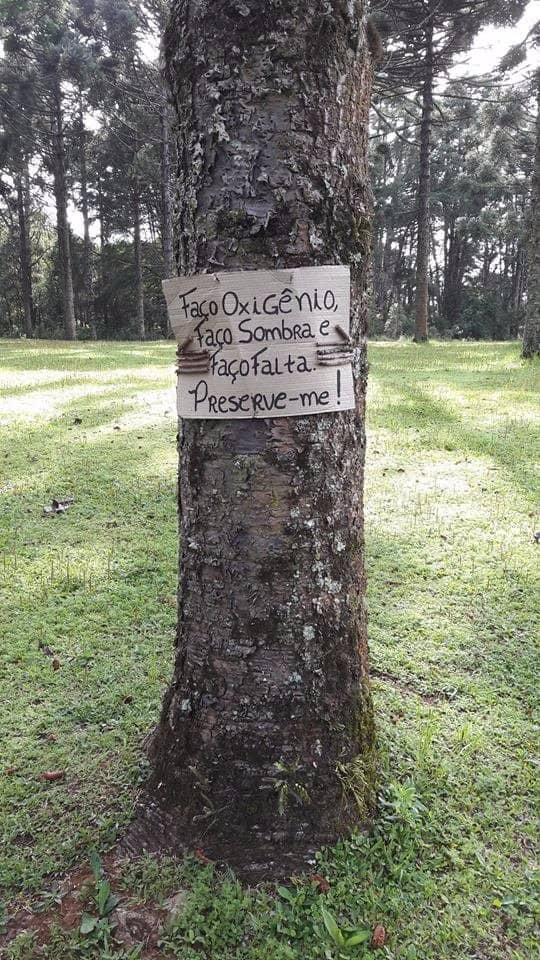 Faço Oxigênio,
Faço Sombra e
Faço Falta.
Preserve-me!